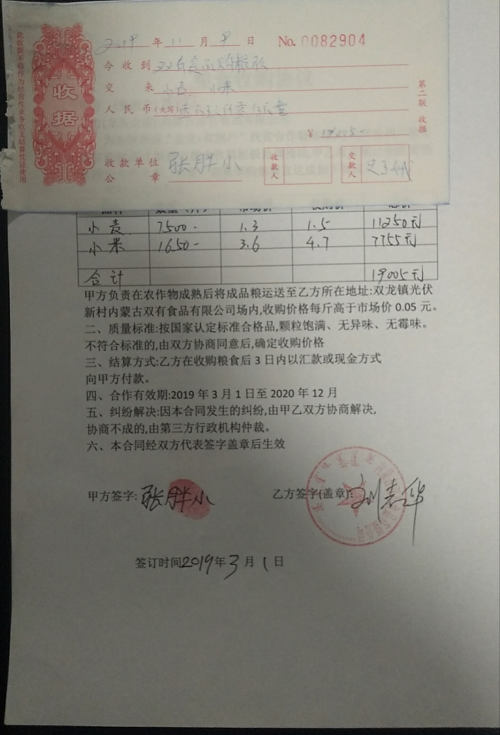 2019 年 11 月 9 日 No. 0082904
今收到
交来 小麦 小米
人民币(大写)
¥ 19005.-
收款单位
公章
张胖小
收款人
交款人
收据
第二联 收据
小麦 7500.- 1.3 1.5 11250元
小米 1650- 3.6 4.7 7755元
合计 19005元
甲方负责在农作物成熟后将成品粮运送至乙方所在地址:双龙镇光伏
新村内蒙古双有食品有限公司场内,收购价格每斤高于市场价 0.05 元。
二、质量标准:按国家认定标准合格品,颗粒饱满、无异味、无霉味。
不符合标准的,由双方协商同意后,确定收购价格
三、结算方式:乙方在收购粮食后 3 日内以汇款或现金方式
向甲方付款。
四、合作有效期:2019 年 3 月 1 日至 2020 年 12 月
五、纠纷解决:因本合同发生的纠纷,由甲乙双方协商解决,
协商不成的,由第三方行政机构仲裁。
六、本合同经双方代表签字盖章后生效
甲方签字: 张胖小 乙方签字(盖章):
签订时间 2019年 3 月 1 日